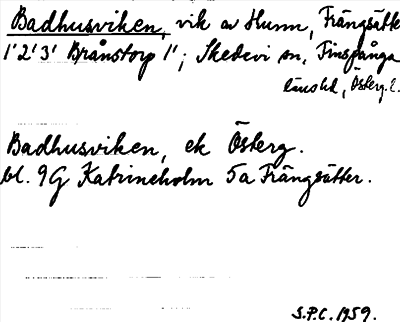 Badhusviken, vik av Hunn, Frängsätter
1'2'3' Brånstorp 1'; Skedevi sn, Finspånga
länshd, Österg. l.
Badhusviken, ek Österg.
bl. 9G Katrineholm 5a Frängsätter.
S.P.C. 1959.